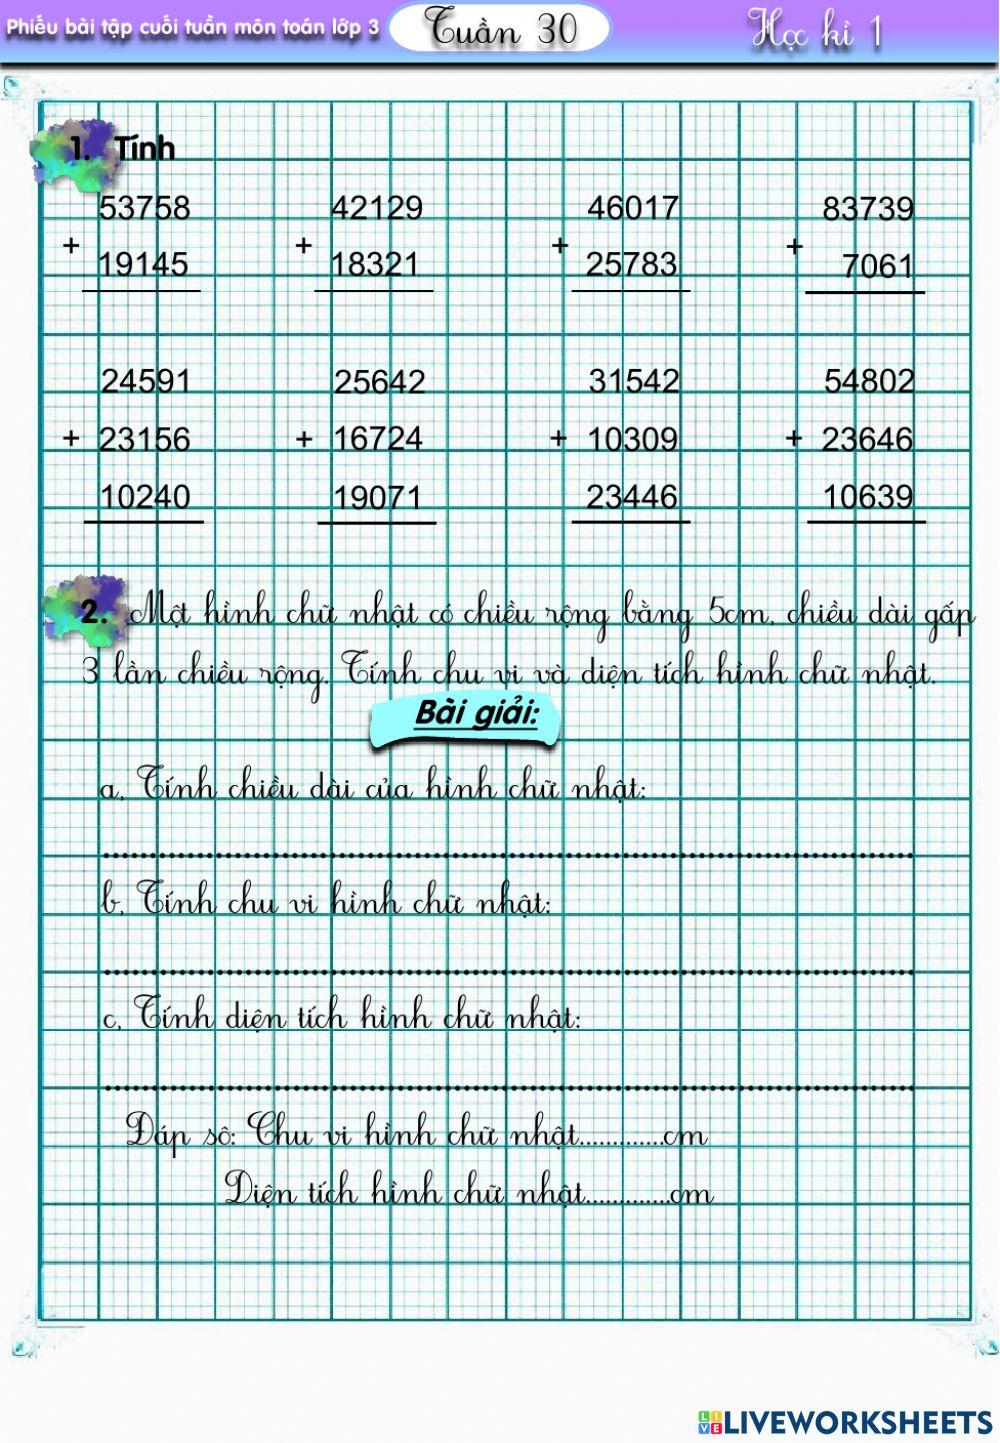 Phiếu bài tập cuối tuần môn toán lớp 3 Tuần 30 Học kì 1
1. Tính
53758 42129 46017 83739
+ + + +
19145 18321 25783 7061
24591 25642 31542 54802
+ 23156 + 16724 + 10309 + 23646
10240 19071 23446 10639
2. Một hình chữ nhật có chiều rộng bằng 5cm, chiều dài gấp
3 lần chiều rộng. Tính chu vi và diện tích hình chữ nhật.
Bài giải:
a, Tính chiều dài của hình chữ nhật:
b, Tính chu vi hình chữ nhật:
c, Tính diện tích hình chữ nhật:
Đáp sô: Chu vi hình chữ nhật.............cm
Diện tích hình chữ nhật.............cm
LIVE LIVEWORKSHEETS